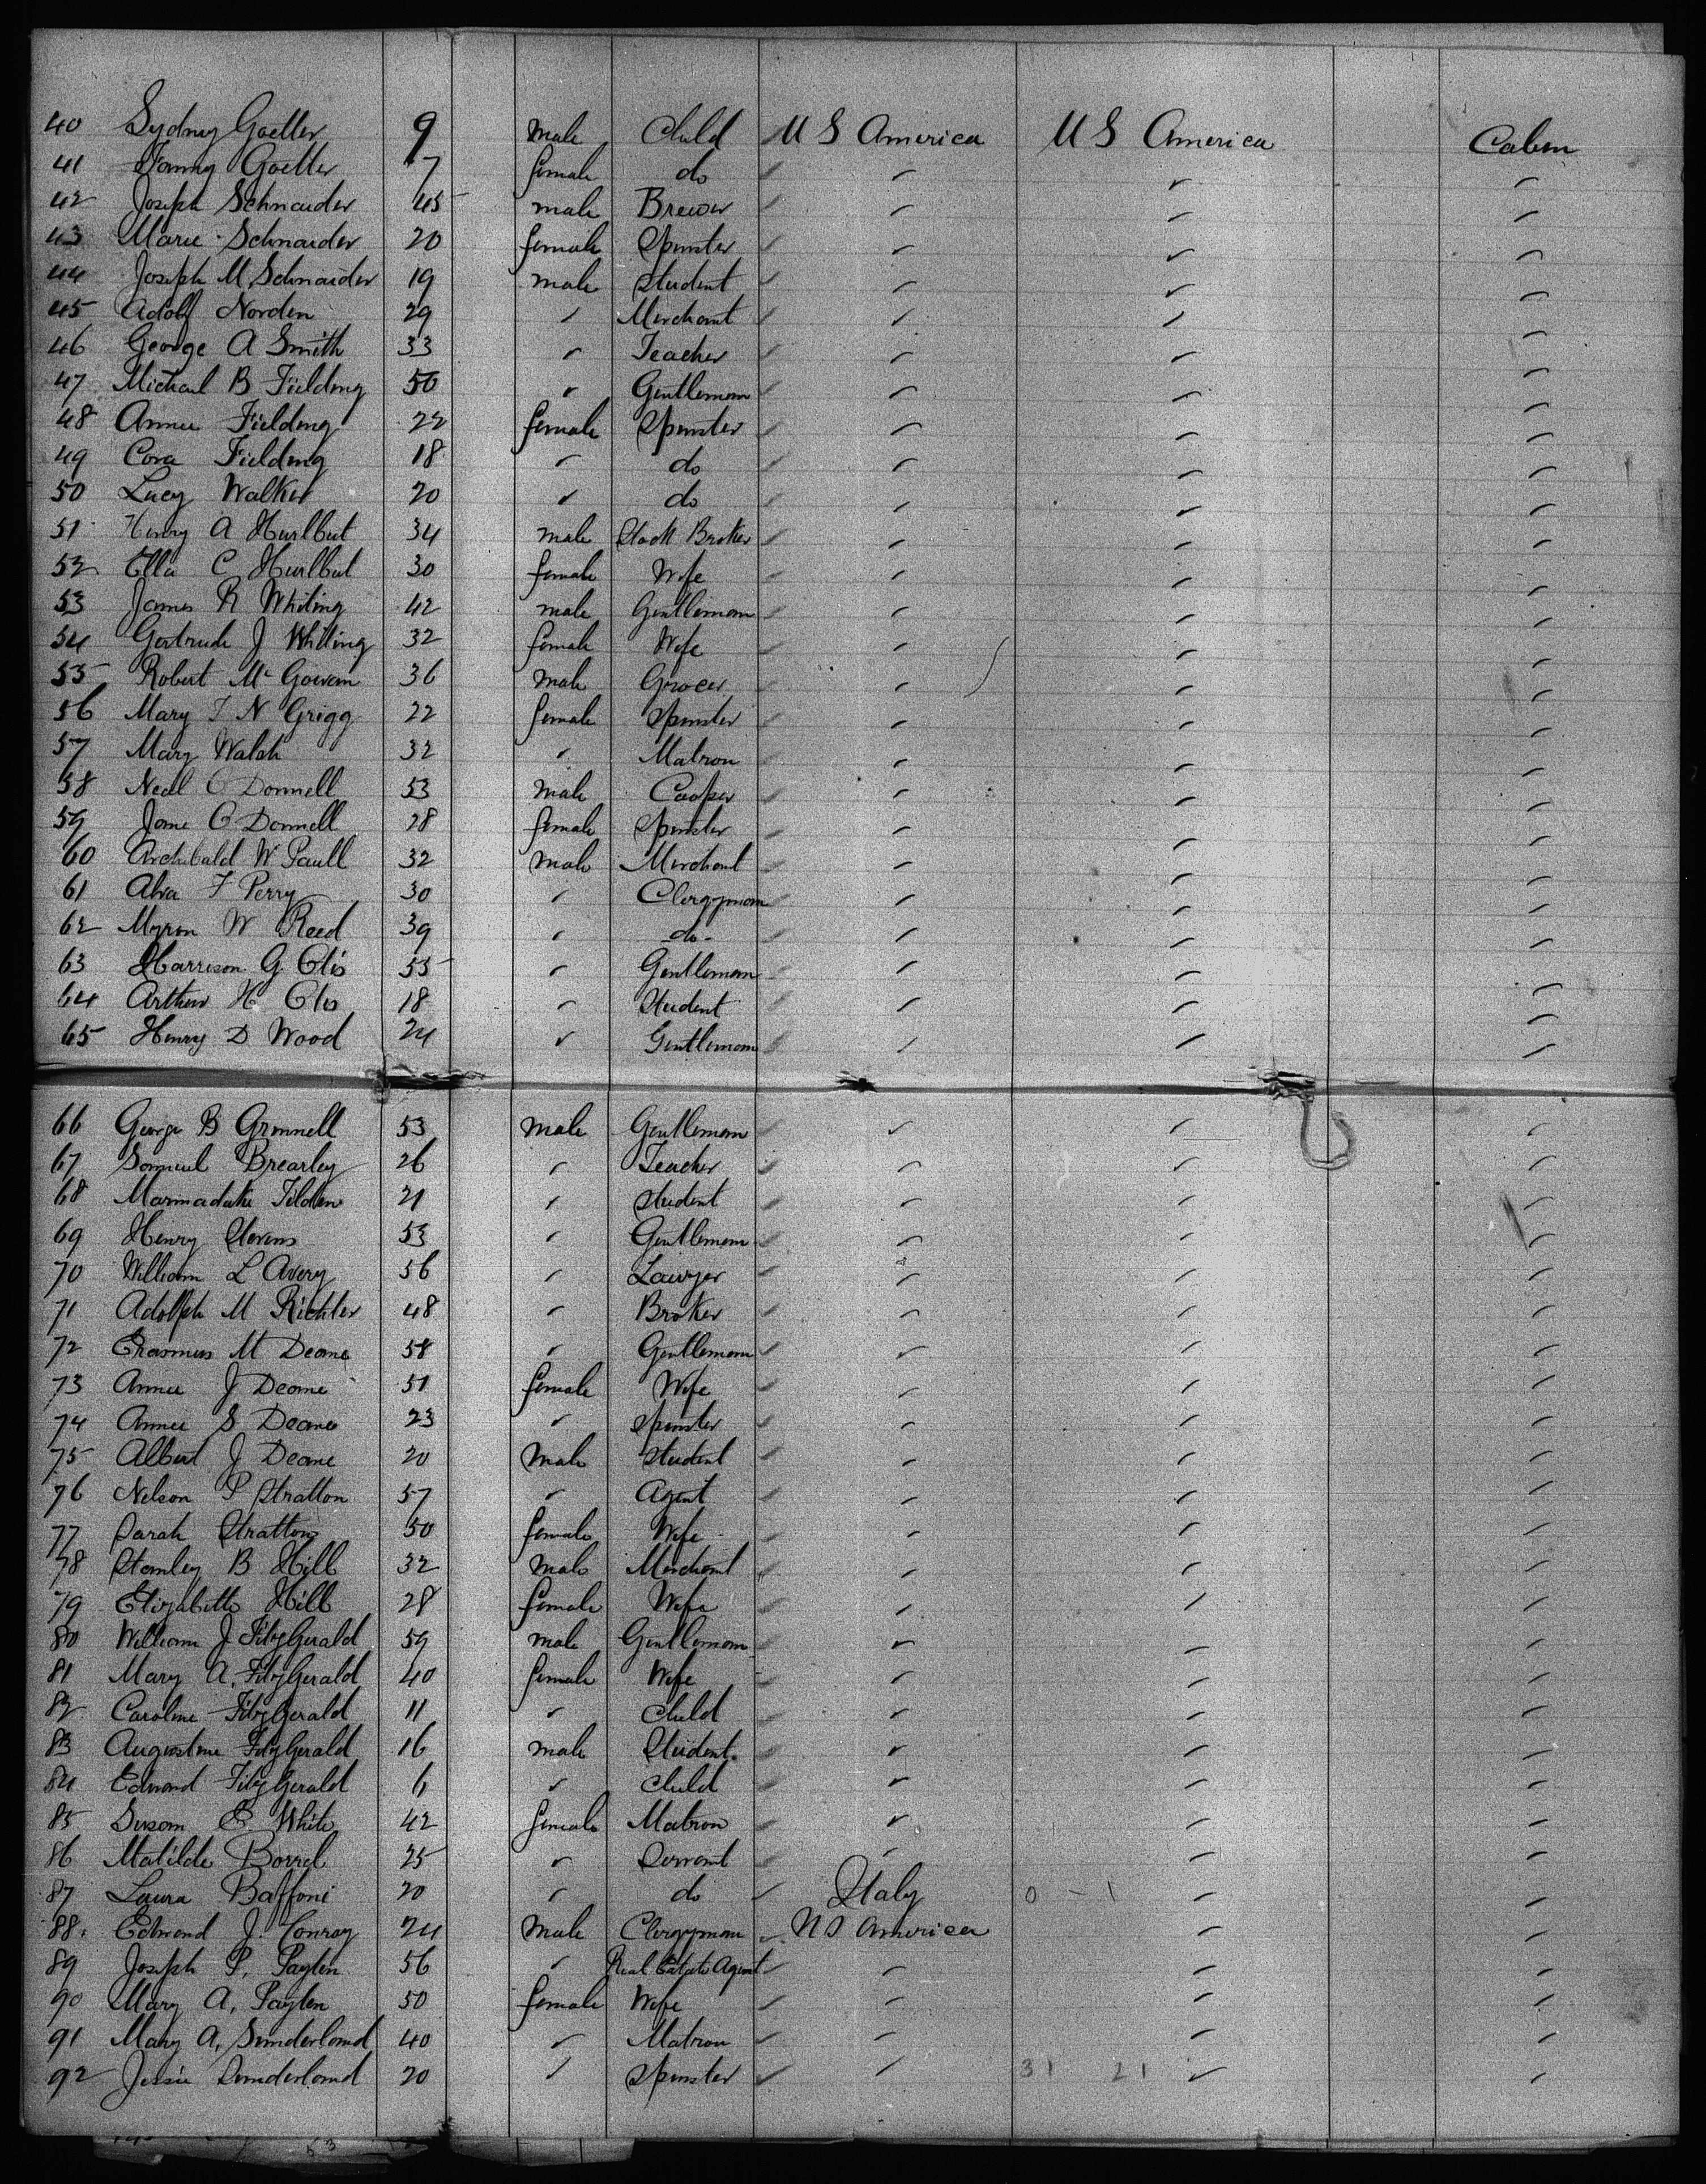 40 Sydney Goeller 9 Male Child U S America U S America Cabin
41 Fanny Goeller 7 female do " " "
42 Joseph Schnaider 45 male Brewer " " "
43 Marie Schnaider 20 female Spinster " " "
44 Joseph M Schnaider 19 male Student " " "
45 Adolf Norden 29 " Merchant " " "
46 George A Smith 33 " Teacher " " "
47 Michael B Fielding 50 " Gentleman " " "
48 Annie Fielding 22 female Spinster " " "
49 Cora Fielding 18 " do " " "
50 Lucy Walker 20 " do " " "
51 Henry A Hurlbut 34 male Stock Broker " " "
52 Ella C Hurlbut 30 female Wife " " "
53 James R Whiting 42 male Gentleman " " "
54 Gertrude J Whiting 32 female Wife " " "
55 Robert Mc Gowan 36 Male Grocer " " "
56 Mary T N Grigg 22 female Spinster " " "
57 Mary Walsh 32 " Matron " " "
58 Neal O Donnell 53 Male Cooper " " "
59 Jane O Donnell 28 female Spinster " " "
60 Archibald W Paull 32 Male Merchant " " "
61 Alva F Perry 30 " Clergyman " " "
62 Myron W Reed 39 " do " " "
63 Harrison G. Otis 55 " Gentleman " " "
64 Arthur H Otis 18 " Student " " "
65 Henry D Wood 24 " Gentleman " " "
66 George B Grinnell 53 Male Gentleman " " "
67 Samuel Brearley 26 " Teacher " " "
68 Marmaduke Tilden 21 " Student " " "
69 Henry Stevens 53 " Gentleman " " "
70 William L Avery 56 " Lawyer " " "
71 Adolph M Richter 48 " Broker " " "
72 Erasmus M Deane 58 " Gentleman " " "
73 Annie J Deane 51 female Wife " " "
74 Annie S Deane 23 " Spinster " " "
75 Albert J Deane 20 Male Student " " "
76 Nelson P Stratton 57 " Agent " " "
77 Sarah Stratton 50 female Wife " " "
78 Stanley B Hill 32 Male Merchant " " "
79 Elizabeth Hill 28 female Wife " " "
80 William J FitzGerald 59 male Gentleman " " "
81 Mary A. FitzGerald 40 female Wife " " "
82 Caroline FitzGerald 11 " Child " " "
83 Augustine FitzGerald 16 male Student " " "
84 Edmond FitzGerald 6 " Child " " "
85 Susan E. White 42 female Matron " " "
86 Matilde Borrel 25 " Servant " " "
87 Laura Baffoni 20 " do Italy 0 - 1 " "
88 Edmond J. Conroy 24 Male Clergyman U S America " "
89 Joseph P. 56 " Real Estate Agent " " "
90 Mary A. 50 female Wife " " "
91 Mary A. Sunderland 40 " Matron " " "
92 Jessie Sunderland 20 " Spinster " 31 21 " "
53